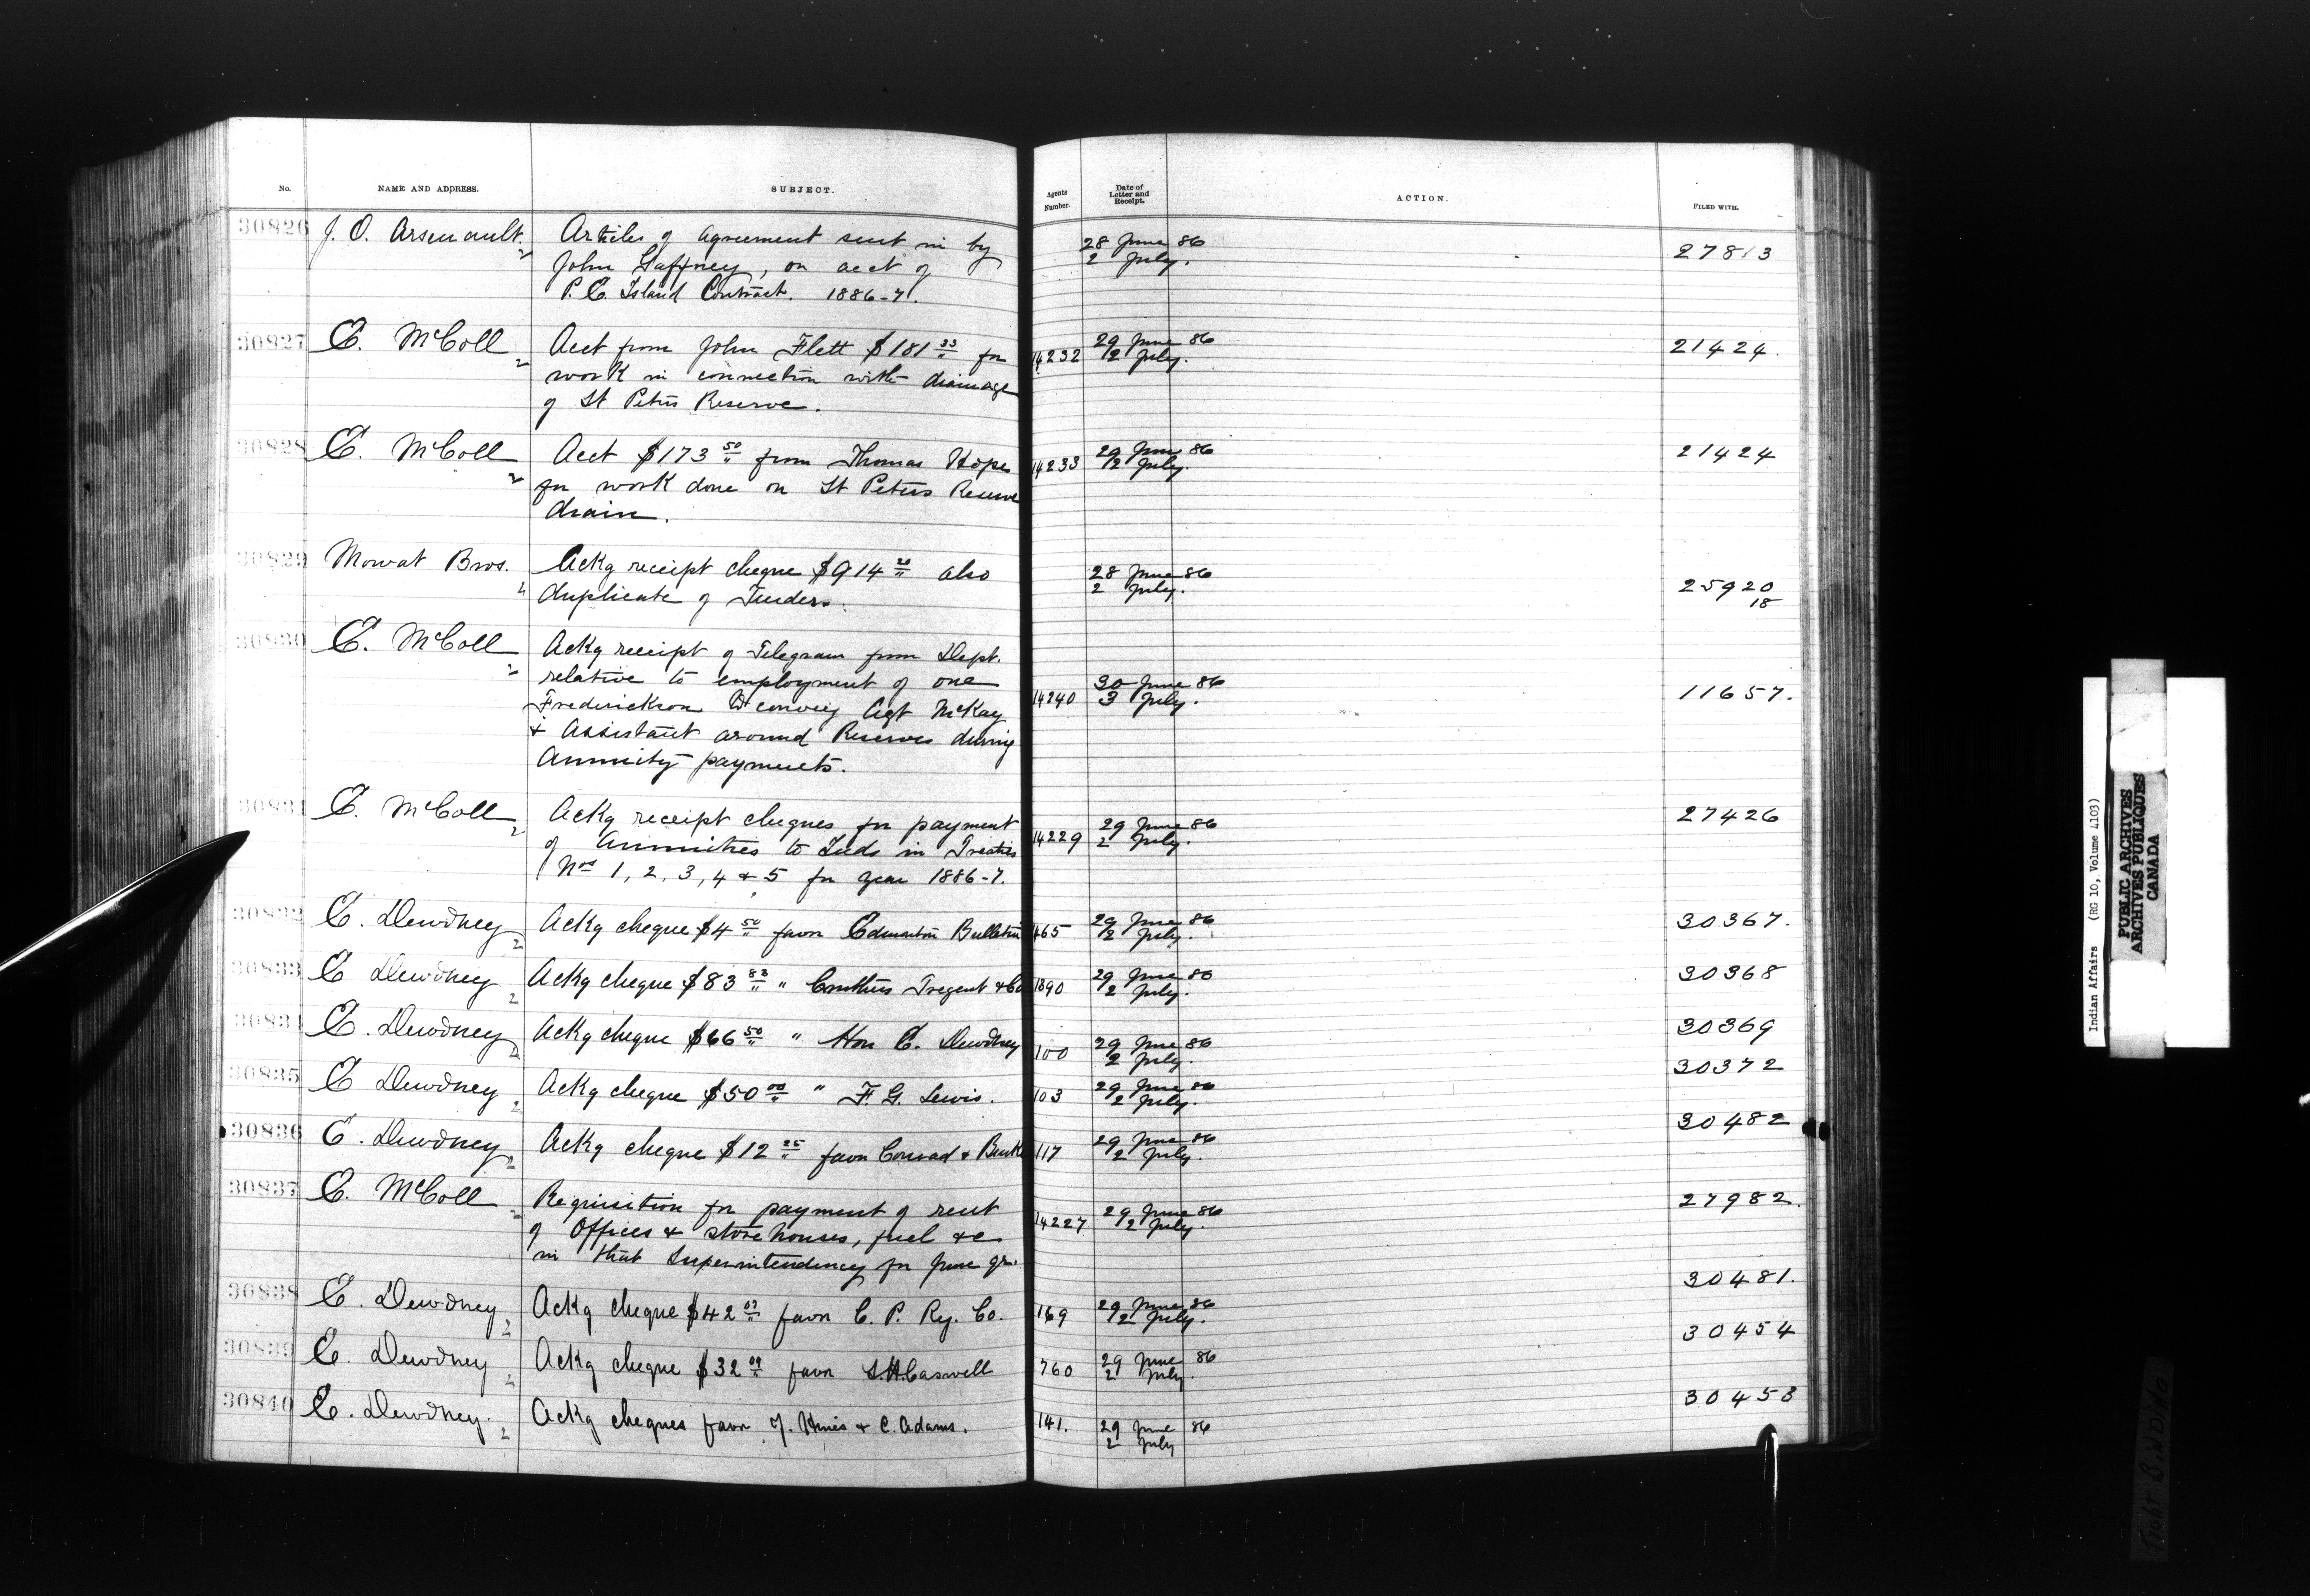 No. NAME AND ADDRESS. SUBJECT. Agents Number. Date of Letter and Receipt. ACTION. FILED WITH.
30826 J. O. Arsenault. 2 Articles of agreement sent in by 28 June 86 27813
John Gaffney, on acct of 2 July.
P. E. Island Contract. 1886-7.
30827 E. McColl 2 Acct from John Flett $181 33 for 14232 29 June 86 21424.
work in connection with drainage 2 July.
of St Peters Reserve.
30828 E. McColl 2 Acct $173 50 from Thomas Hope 14233 29 June 86 21424
for work done on St Peters Reserve 2 July.
drain.
30829 Mowat Bros. 2 Ackg receipt cheque $914 20 also 28 June 86 25920
duplicate of Tenders. 2 July. 18
30830 E. McColl 2 Ackg receipt of Telegram from Dept.
relative to employment of one 30 June 86 11657.
Frederickson to convey Agt McKay 14240 3 July.
& Assistant around Reserves during
Annuity payments.
30831 E. McColl 2 Ackg receipt cheques for payment 29 June 86 27426
of Annuities to Inds in Treaties 14229 2 July.
Nos 1, 2, 3, 4 & 5 for year 1886-7.
30832 E. Dewdney 2 Ackg cheque $4 50 favor Edmonton Bulletin 165 29 June 86 30367.
2 July.
30833 E Dewdney 2 Ackg cheque $83 83 " Tregent & Co 29 June 86 30368
2 July.
30834 E. Dewdney 2 Ackg cheque $66 50 " Hon E. Dewdney 100 29 June 86 30369
2 July.
30835 E Dewdney 2 Ackg cheque $50 00 " F. G. Lewis. 103 29 June 86 30372
2 July.
30836 E. Dewdney 2 Ackg cheque $12 25 favor Conrad & 117 29 June 86 30482
2 July.
30837 E. McColl 2 Requisition for payment of rent 29 June 86 27982.
of Offices & store houses, fuel &c 14227 2 July.
in that Superintendency for June qr.
30838 E. Dewdney 2 Ackg cheque $42 07 favor C. P. Ry. Co. 169 29 June 86 30481.
2 July.
30839 E. Dewdney 2 Ackg cheque $32 09 favor S.H. Caswell 760 29 June 86 30454
2 July.
30840 E. Dewdney. 2 Ackg cheques favor J. Hines & C. Adams. 141. 29 June 86 30453
2 July
Indian Affairs (RG 10, Volume 4103)
PUBLIC ARCHIVES
ARCHIVES PUBLIQUES
CANADA
TIGHT BINDING